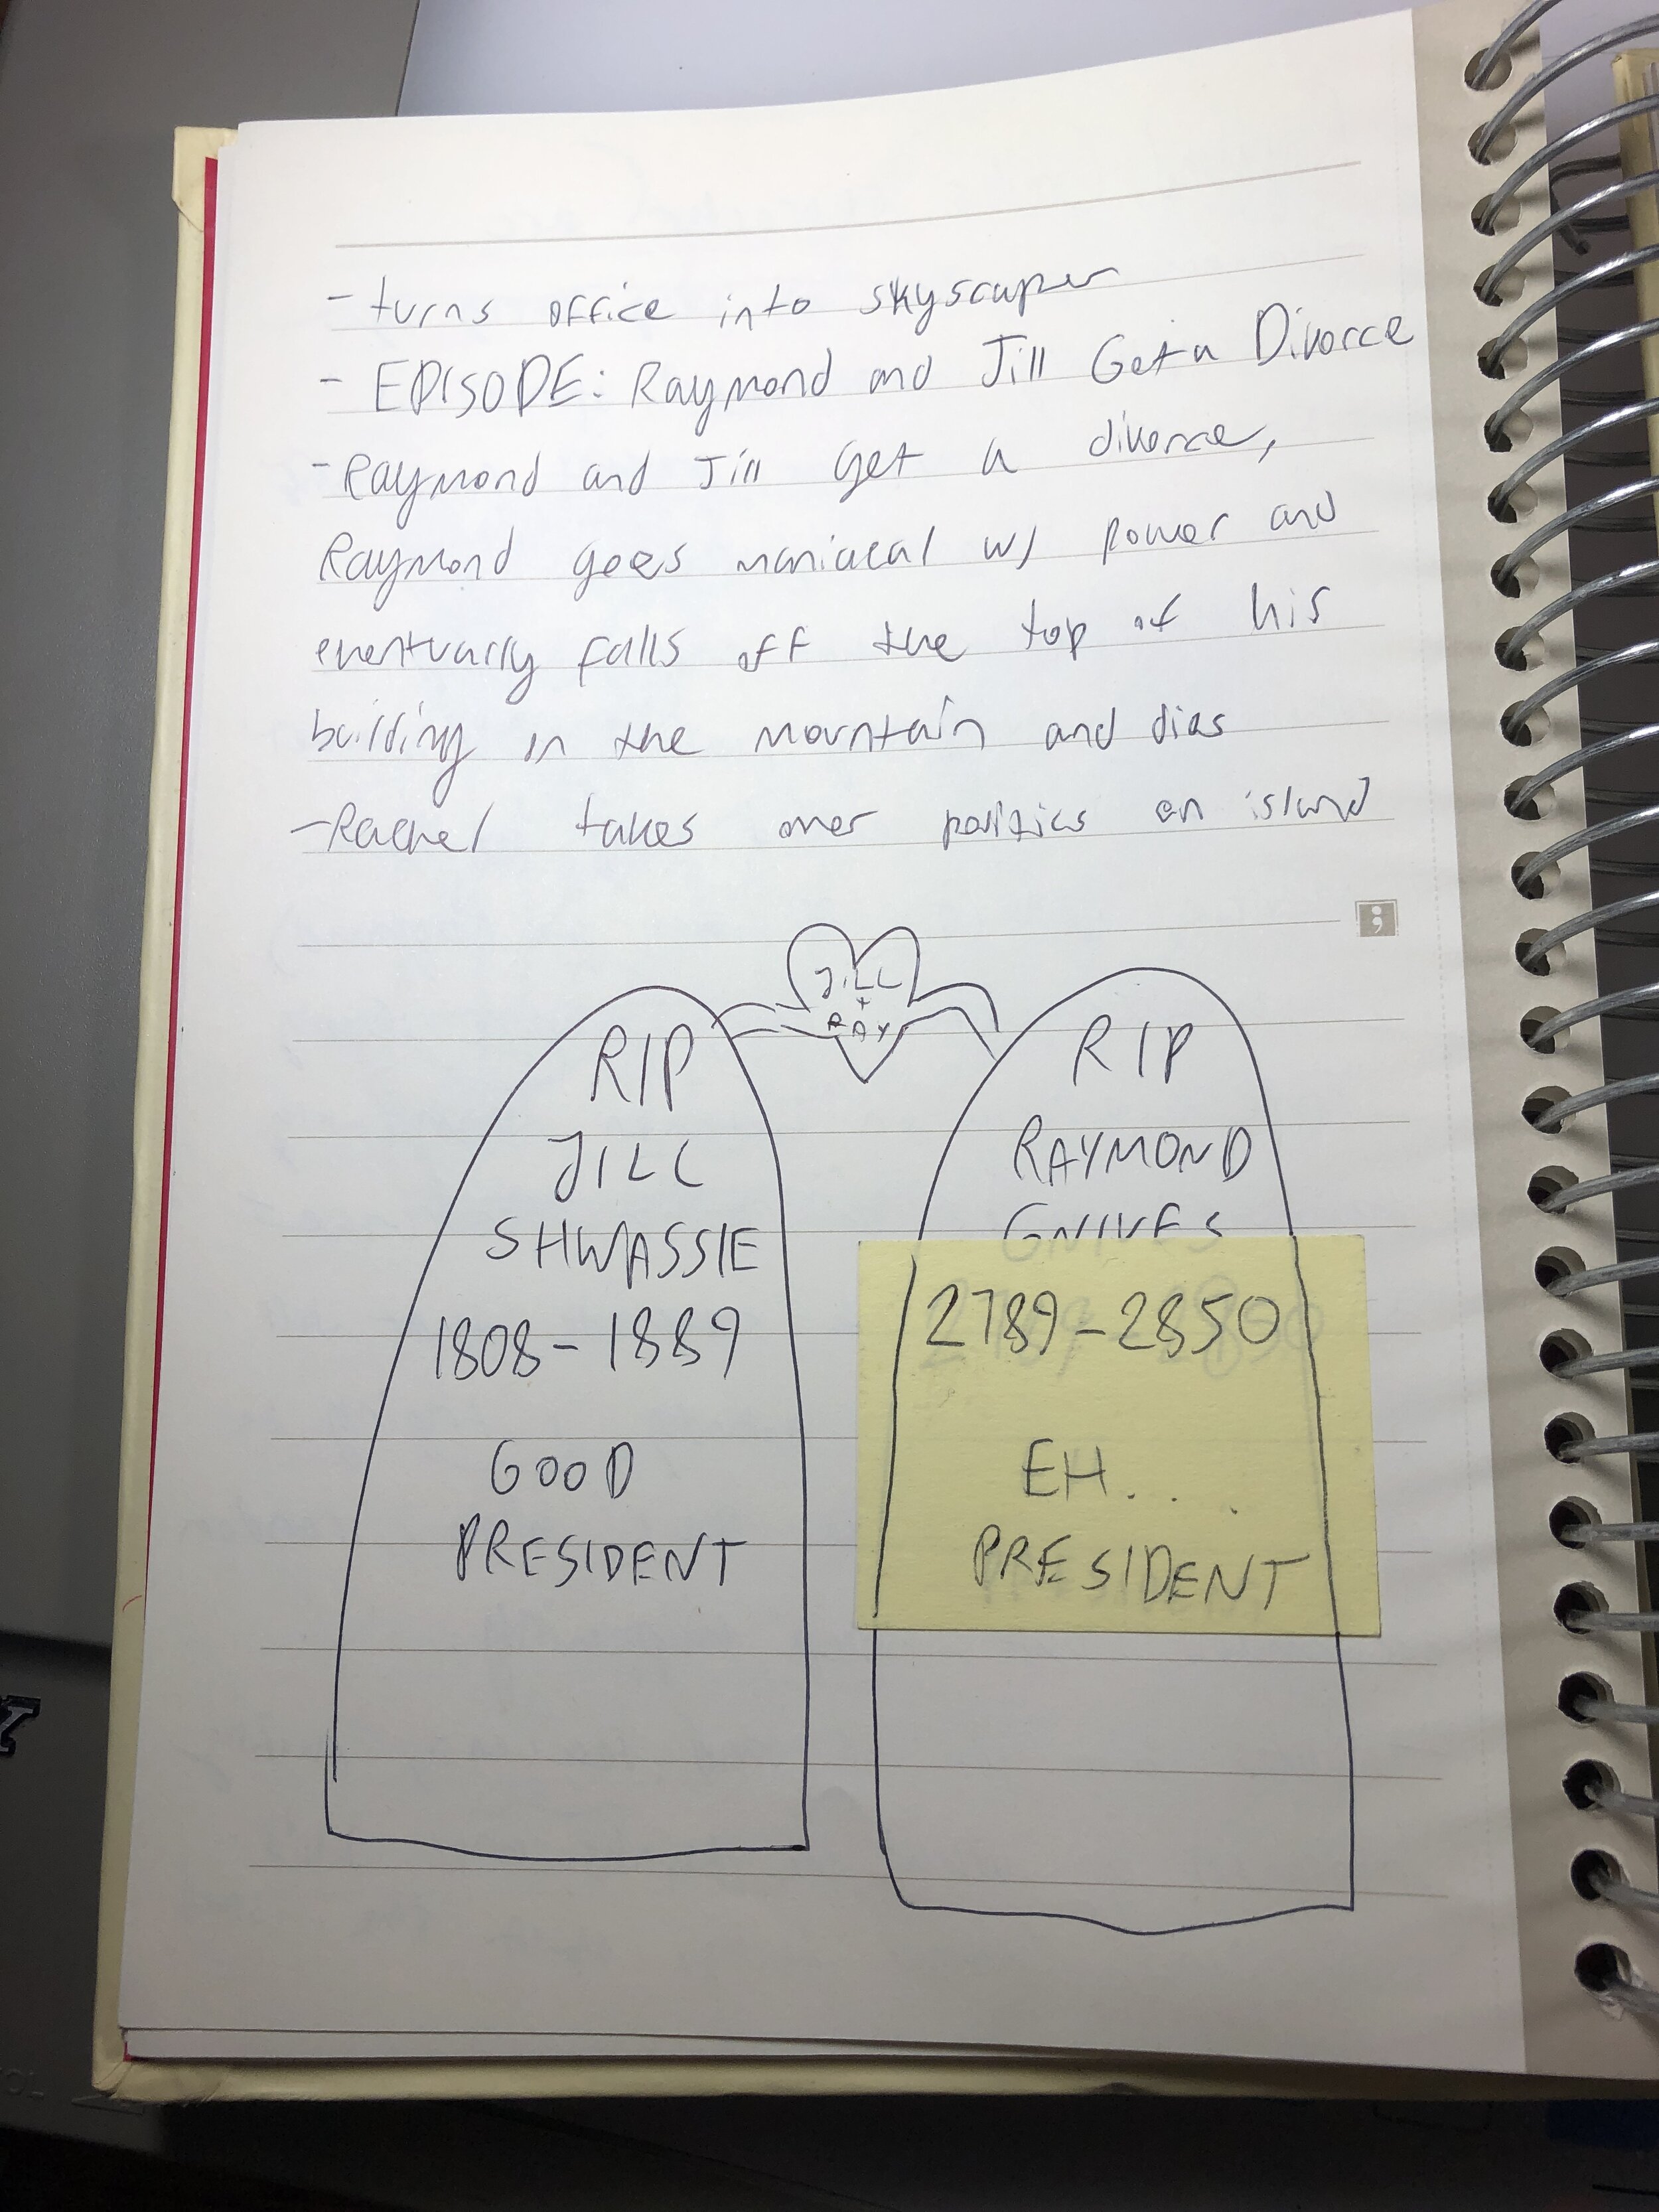 - turns office into skyscaper
- EPISODE: Raymond and Jill Get a Divorce
- Raymond and Jill get a divorce,
Raymond goes maniacal w/ power and
eventually falls off the top of his
building in the mountain and dies
- Rachel takes over politics on island
JILL
+
RAY
RIP
JILL
SHWASSIE
1808-1889
GOOD
PRESIDENT
RIP
RAYMOND
GNIVES
2789-2850
EH...
PRESIDENT